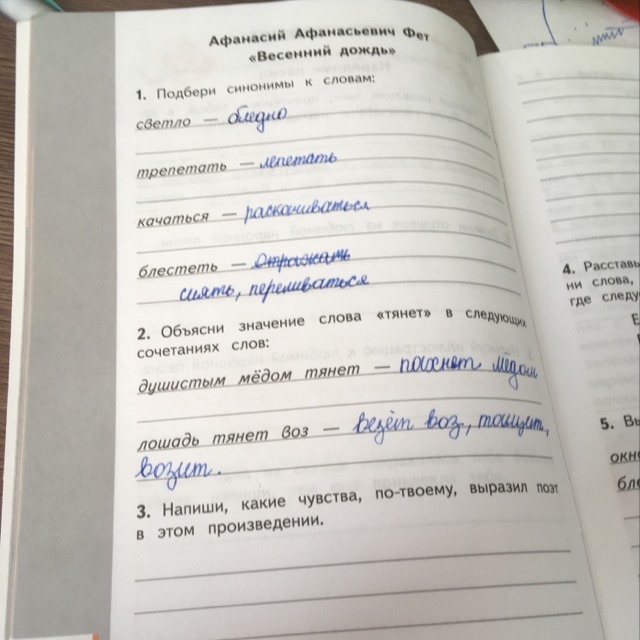 Афанасий Афанасьевич Фет
«Весенний дождь»
1. Подбери синонимы к словам:
светло — бледно
трепетать — лепетать
качаться — раскачиваться
блестеть — отражать
сиять, переливаться
2. Объясни значение слова «тянет» в следующих
сочетаниях слов:
душистым мёдом тянет — пахнет мёдом
лошадь тянет воз — везёт воз, тащит,
возит.
3. Напиши, какие чувства, по-твоему, выразил поэт
в этом произведении.
4. Расставь
ни слова,
где следу
Е
5. Вы
окно
бле